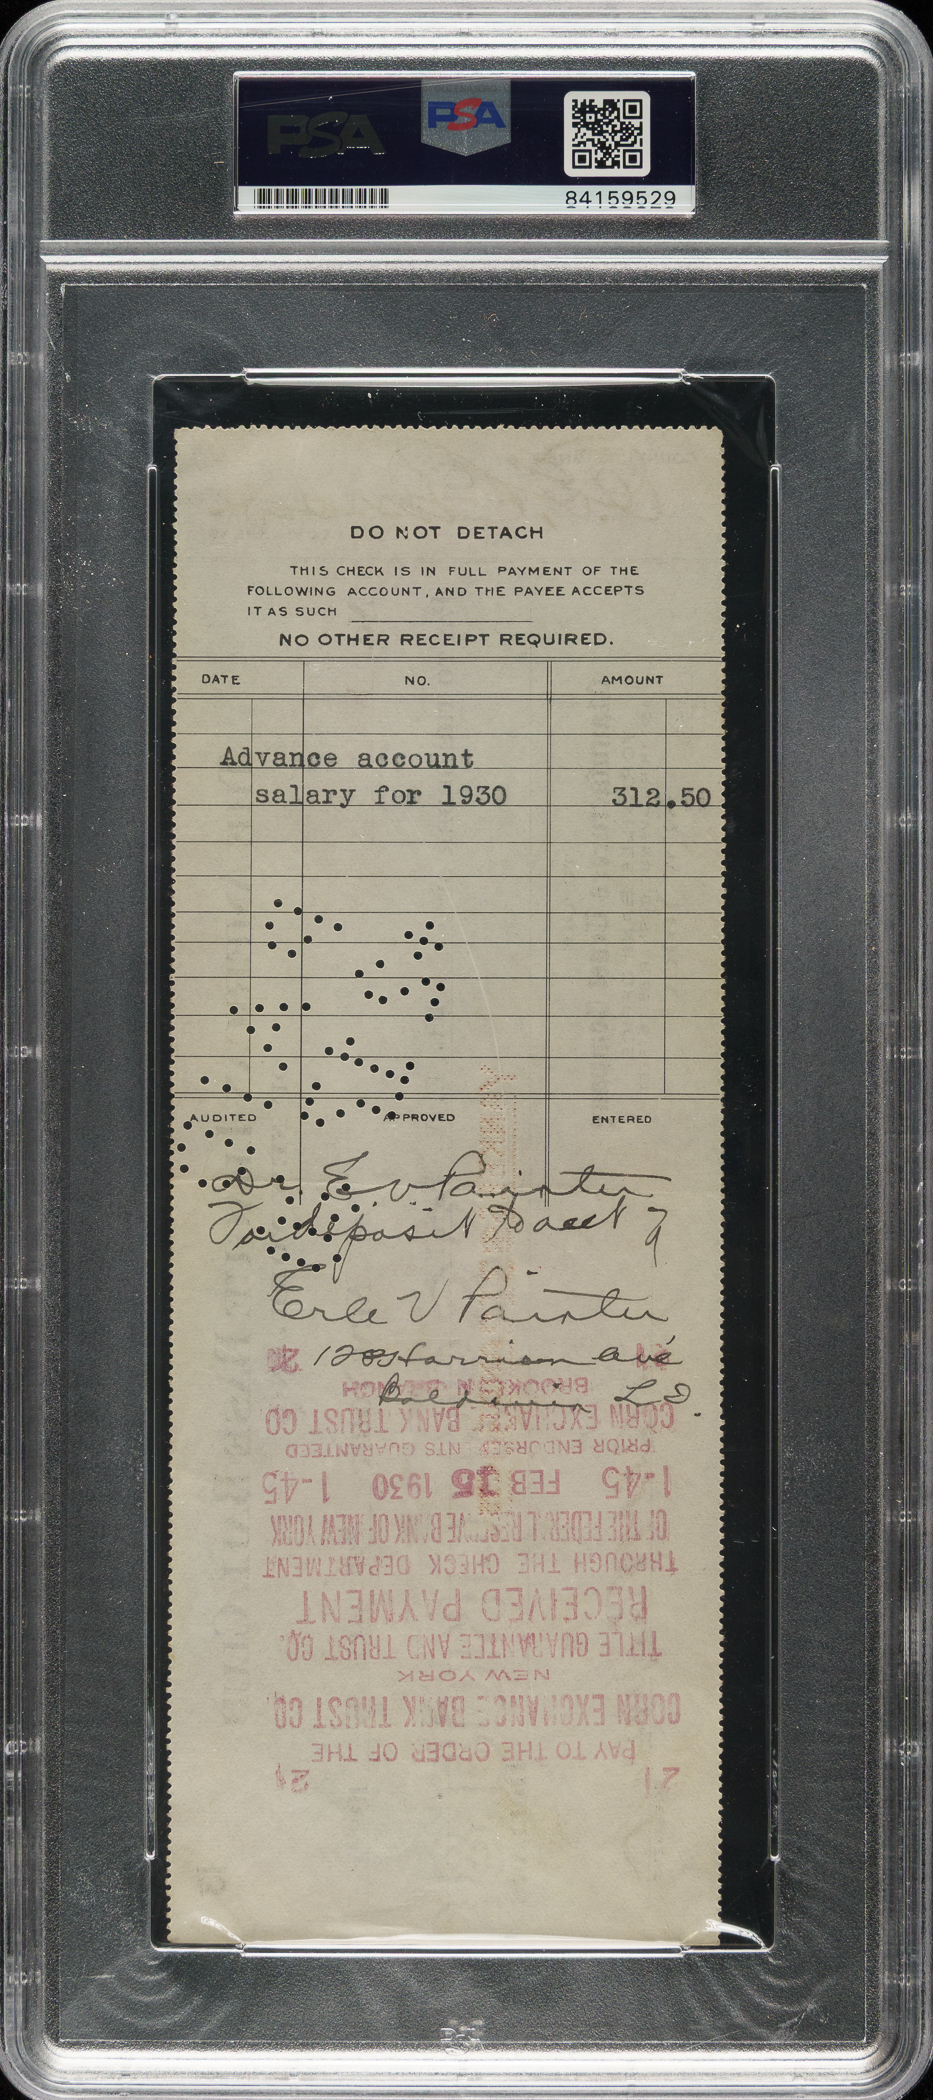 PSA
PSA
84159529
DO NOT DETACH
THIS CHECK IS IN FULL PAYMENT OF THE
FOLLOWING ACCOUNT, AND THE PAYEE ACCEPTS
IT AS SUCH
NO OTHER RECEIPT REQUIRED.
DATE NO. AMOUNT
Advance account
salary for 1930 312.50
AUDITED APPROVED ENTERED
Dr. E V Painter
For deposit to acct of
Erle V Painter
128 Harrison Ave
Baldwin L.I.
BROOKLYN BRANCH
CORN EXCHANGE BANK TRUST CO
PRIOR ENDORSEMENTS GUARANTEED
1-45 FEB 15 1930 1-45
OF THE FEDERAL RESERVE BANK OF NEW YORK
THROUGH THE CHECK DEPARTMENT
RECEIVED PAYMENT
TITLE GUARANTEE AND TRUST CO.
NEW YORK
CORN EXCHANGE BANK TRUST CO.
PAY TO THE ORDER OF THE